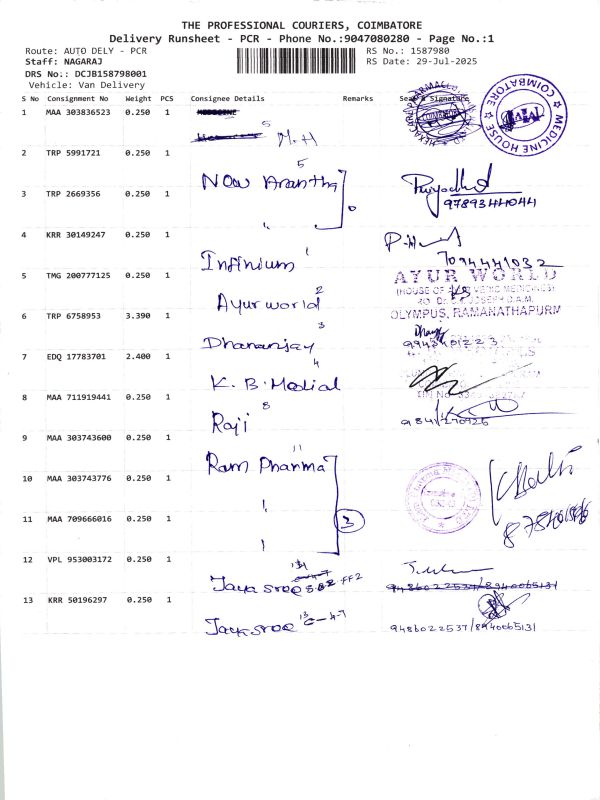 THE PROFESSIONAL COURIERS, COIMBATORE
Delivery Runsheet - PCR - Phone No.:9047080280 - Page No.:1
Route: AUTO DELY - PCR RS No.: 1587980
Staff: NAGARAJ RS Date: 29-Jul-2025
DRS No.: DCJB158798001
Vehicle: Van Delivery
S No Consignment No Weight PCS Consignee Details Remarks Seal & Signature
1 MAA 303836523 0.250 1 MEDICINE
5
M.H
MEDICINE HOUSE COIMBATORE
2 TRP 5991721 0.250 1
5
Now Anantha
3 TRP 2669356 0.250 1
9789344044
4 KRR 30149247 0.250 1
Infinium 1
7094441032
5 TMG 200777125 0.250 1
Ayur world 2
AYUR WORLD
(HOUSE OF VEDIC MEDICINES)
OLYMPUS, RAMANATHAPURM
6 TRP 6758953 3.390 1
Dhananjay 3
7 EDQ 17783701 2.400 1
K. B. Medial 4
8 MAA 711919441 0.250 1
Raji 8
9 MAA 303743600 0.250 1
Ram Pharma 11
10 MAA 303743776 0.250 1
11 MAA 709666016 0.250 1
3
12 VPL 953003172 0.250 1
Jaya sree FF2
9486022537/8940065131
13 KRR 50196297 0.250 1
Jaya sree 13 C-4-7
9486022537/8940065131